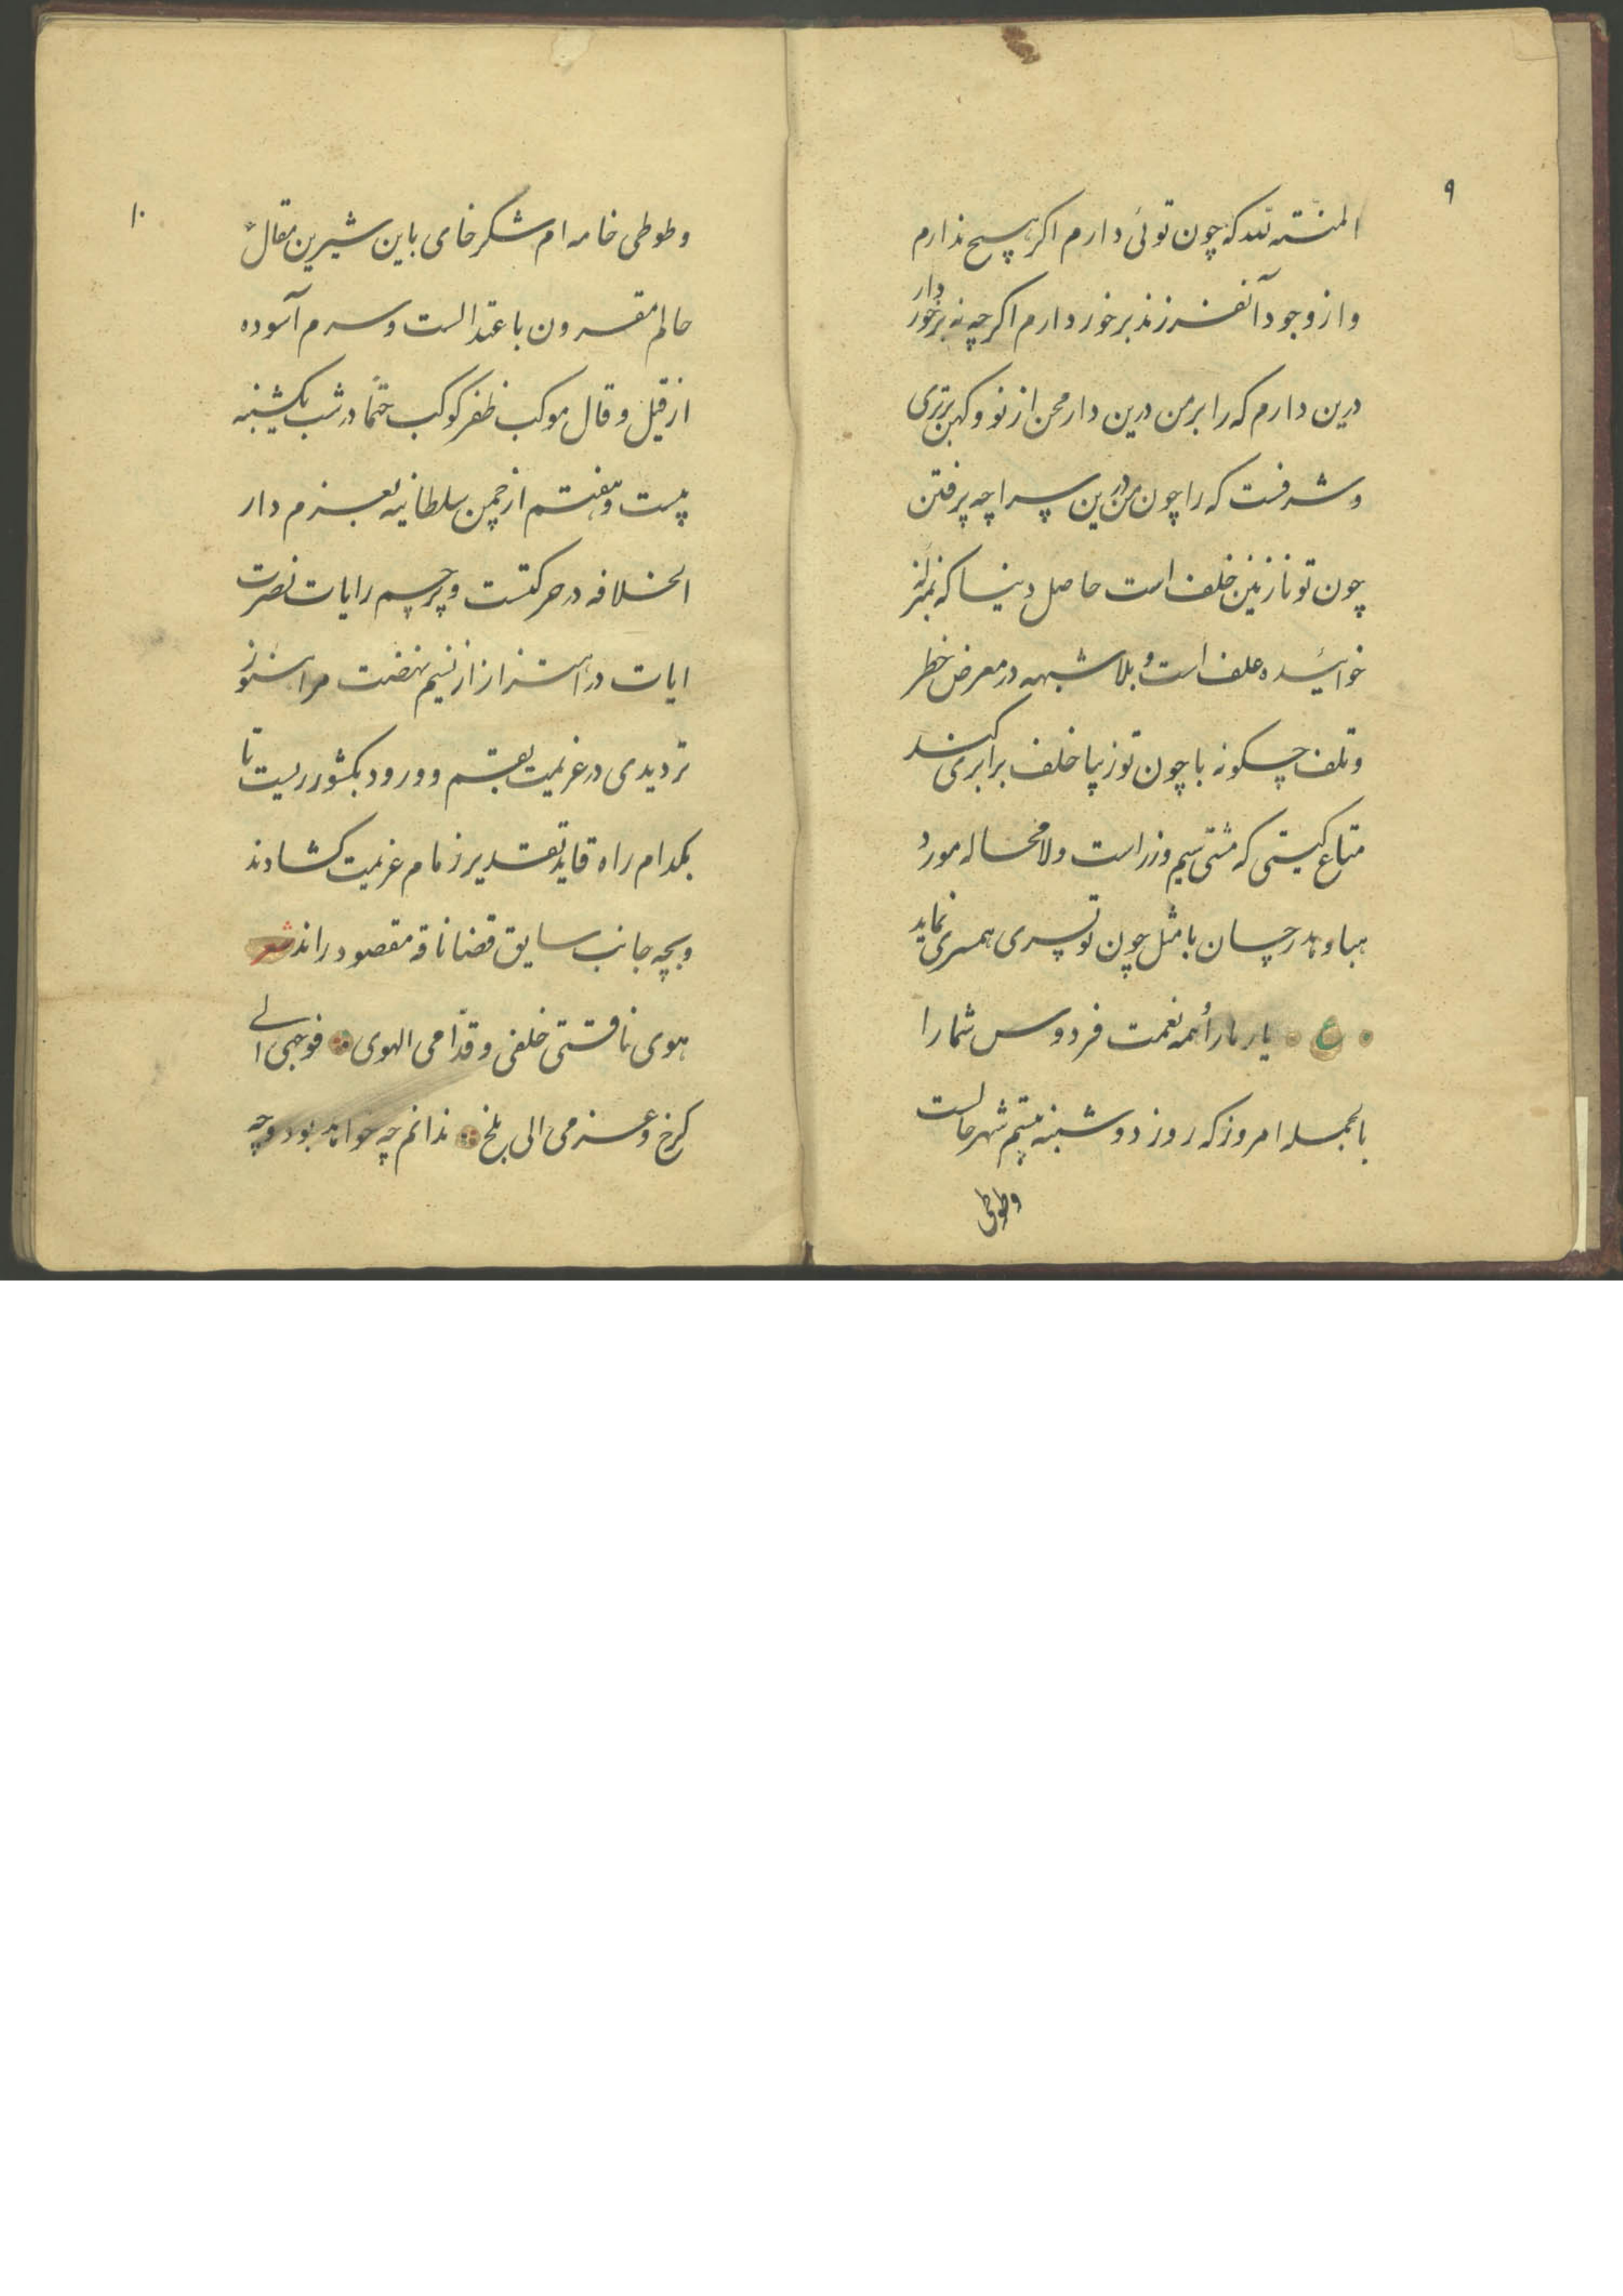 ۹
المنته لله که چون توئی دارم اکر هیچ ندارم
و از وجود آنفرزند برخوردارم اکرچه نه برخوردار
درین دارم که را بر من درین دار محن از نو و کهن برتری
و شرفست که را چون من درین سراچه پر فتن
چون تو نازنین خلف است حاصل دنیا که بمنزله
خوائیده علف است و بلا شبهه در معرض خطر
و تلف چکونه با چون تو زیبا خلف برابری کند
متاع کیتی که مشتی سیم و زر است ولا محاله مورد
هبا و هدر چسان با مثل چون تو پسری همسری نماید
ع یار ما را همه نعمت فردوس شما را
بالجمله امروز که روز دوشنبه بیستم شهر حالست
وطوطی
۱۰
و طوطی خامه ام شکر خای باین شیرین مقال
حالم مقرون باعتدالست و سرم آسوده
از قیل و قال موکب ظفر کوکب حتماً در شب یکشنبه
بیست و هفتم از چمن سلطانیه بعزم دار
الخلافه در حرکتست و پرچم رایات نصرت
ایات در اهتزاز از نسیم نهضت مرا هنوز
تردیدی در عزیمت بقم و ورود بکشور ریست تا
بکدام راه قاید تقدیر زمام عزیمت کشادند
و بچه جانب سایق قضا ناقه مقصود راند شعر
هوی ناقتی خلفی و قدّامی الهوی فوجهی الی
کرخ و عزمی الی بلخ ندانم چه خواهد بود و چه